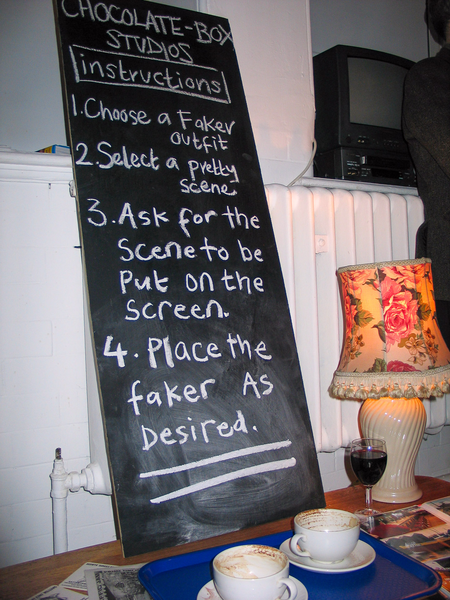 CHOCOLATE-BOX
STUDIOS
instructions
1. Choose a Faker
outfit
2. Select a pretty
scene.
3. Ask for the
Scene to be
Put on the
Screen.
4. Place the
faker As
Desired.